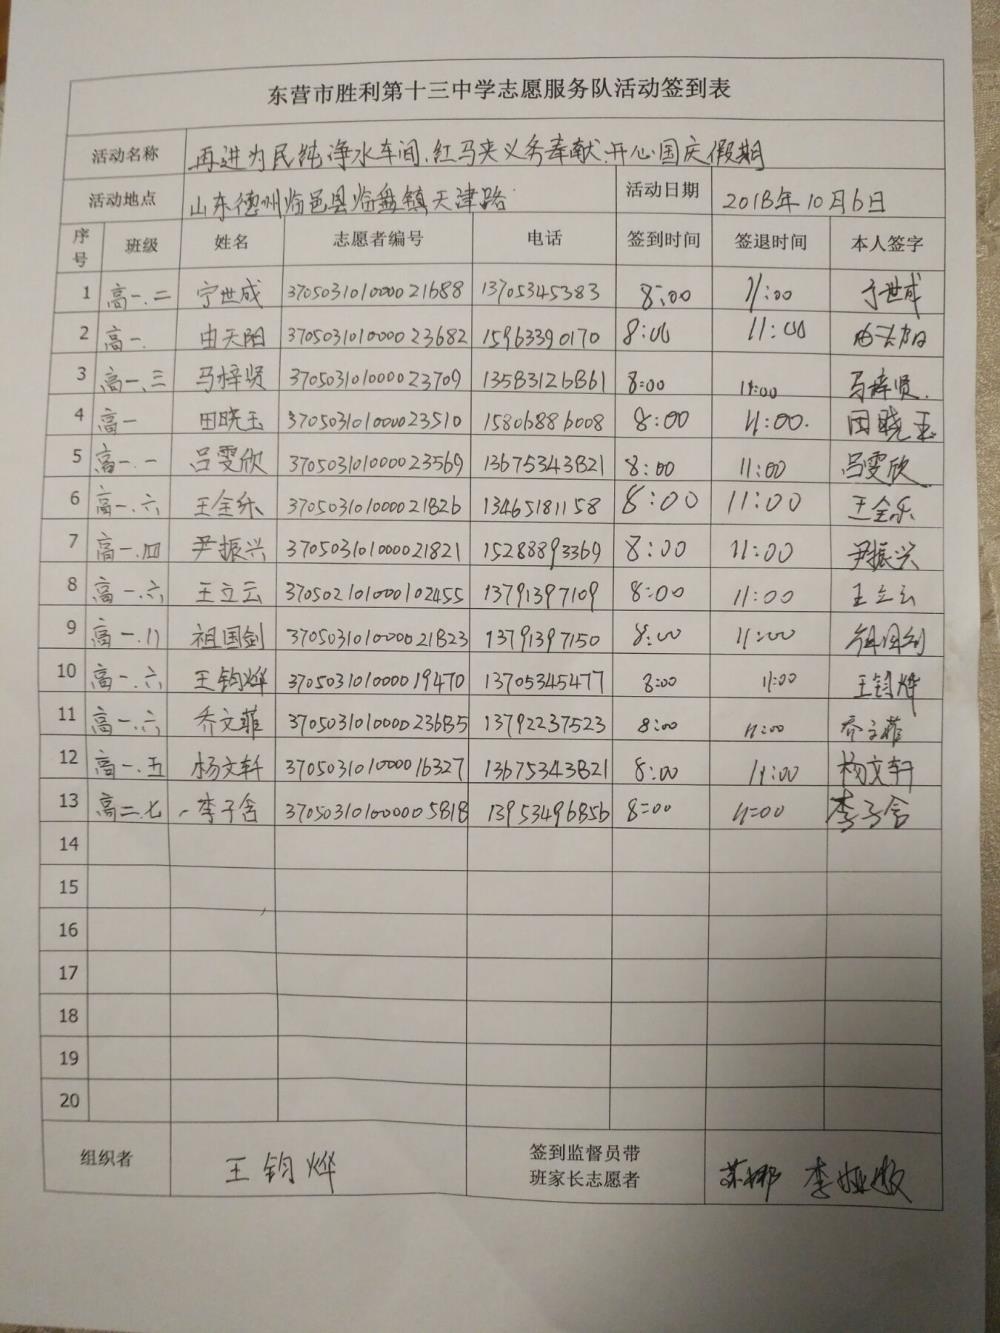 东营市胜利第十三中学志愿服务队活动签到表
活动名称 再进为民纯净水车间.红马夹义务奉献.开心国庆假期
活动地点 山东德州临邑县临盘镇天津路 活动日期 2018年10月6日
序号 班级 姓名 志愿者编号 电话 签到时间 签退时间 本人签字
1 高一.二 宁世成 3705031010000021688 13705345383 8:00 11:00 宁世成
2 高一. 由天阳 370503101000023682 15963390170 8:00 11:00 由天阳
3 高一.三 马梓贤 370503101000023709 13583126861 8:00 11:00 马梓贤.
4 高一 田晓玉 370503101000023510 15806886008 8:00 11:00. 田晓玉
5 高一.一 吕雯欣 370503101000023569 13675343821 8:00 11:00 吕雯欣
6 高一.六 王全乐 370503101000021826 13465181158 8:00 11:00 王全乐
7 高一.四 尹振兴 370503101000021821 15288893369 8:00 11:00 尹振兴
8 高一.六 王立云 370502101000102455 13791397109 8:00 11:00 王立云
9 高一.八 祖国剑 370503101000021823 13791397150 8:00 11:00 祖国剑
10 高一.六 王钧烨 370503101000019470 13705345477 8:00 11:00 王钧烨
11 高一.六 乔文菲 370503101000023685 13792237523 8:00 11:00 乔文菲
12 高一.五 杨文轩 370503101000016327 13675343821 8:00 11:00 杨文轩
13 高二.七 李子含 3705031010000005818 13953496856 8:00 11:00 李子含
14
15
16
17
18
19
20
组织者 王钧烨 签到监督员带 苏娜 李娅敏
班家长志愿者